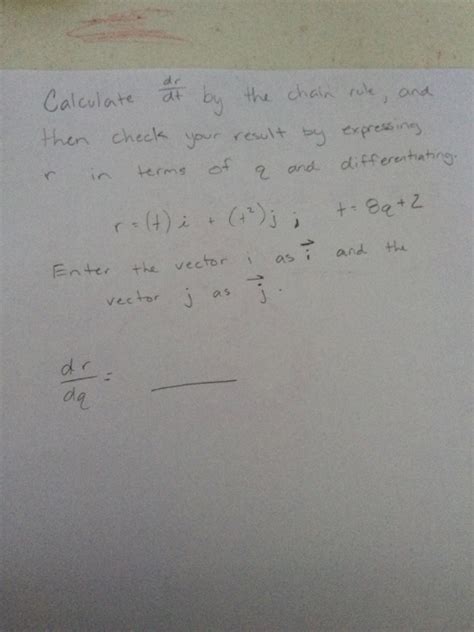 Calculate dr/dt by the chain rule, and
then check your result by expressing
r in terms of q and differentiating.
r = (t) i + (t²) j ; t = 8q + 2
Enter the vector i as i⃗ and the
vector j as j⃗.
dr/dq = ____